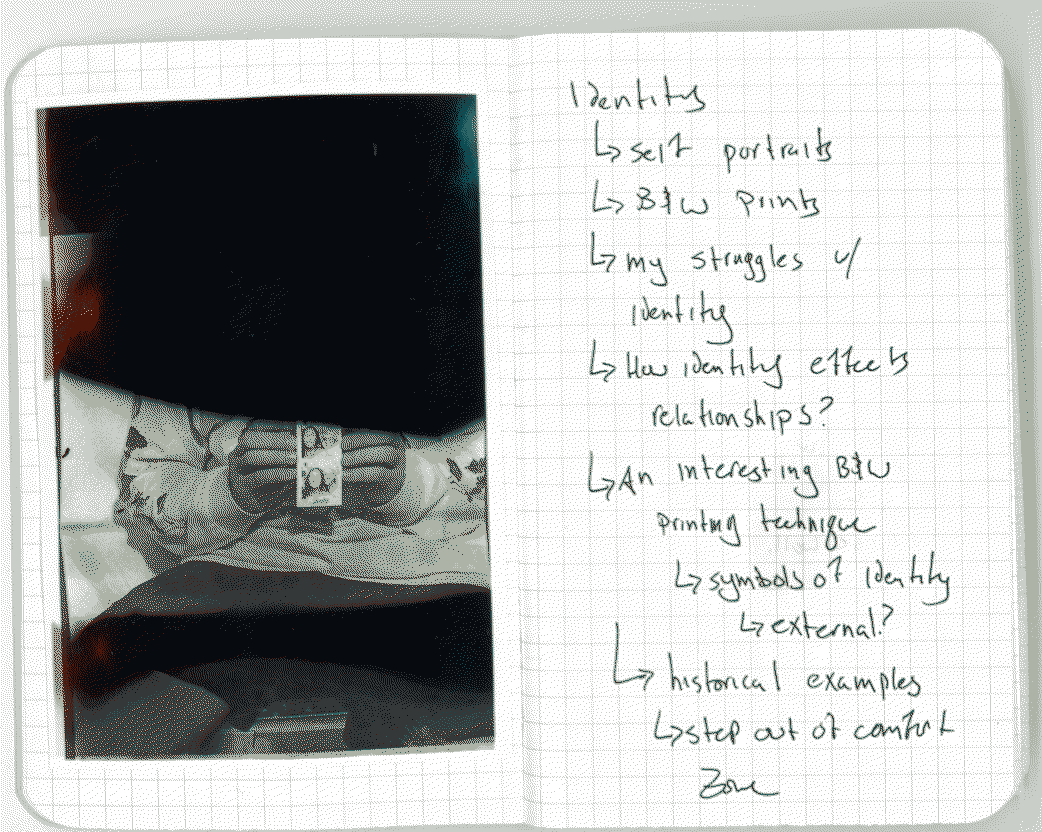 Identity
↳ self portraits
↳ B&W prints
↳ my struggles w/
identity
↳ How identity effects
relationships?
↳ An interesting B&W
printing technique
↳ symbols of identity
↳ external?
↳ historical examples
↳ step out of comfort
Zone